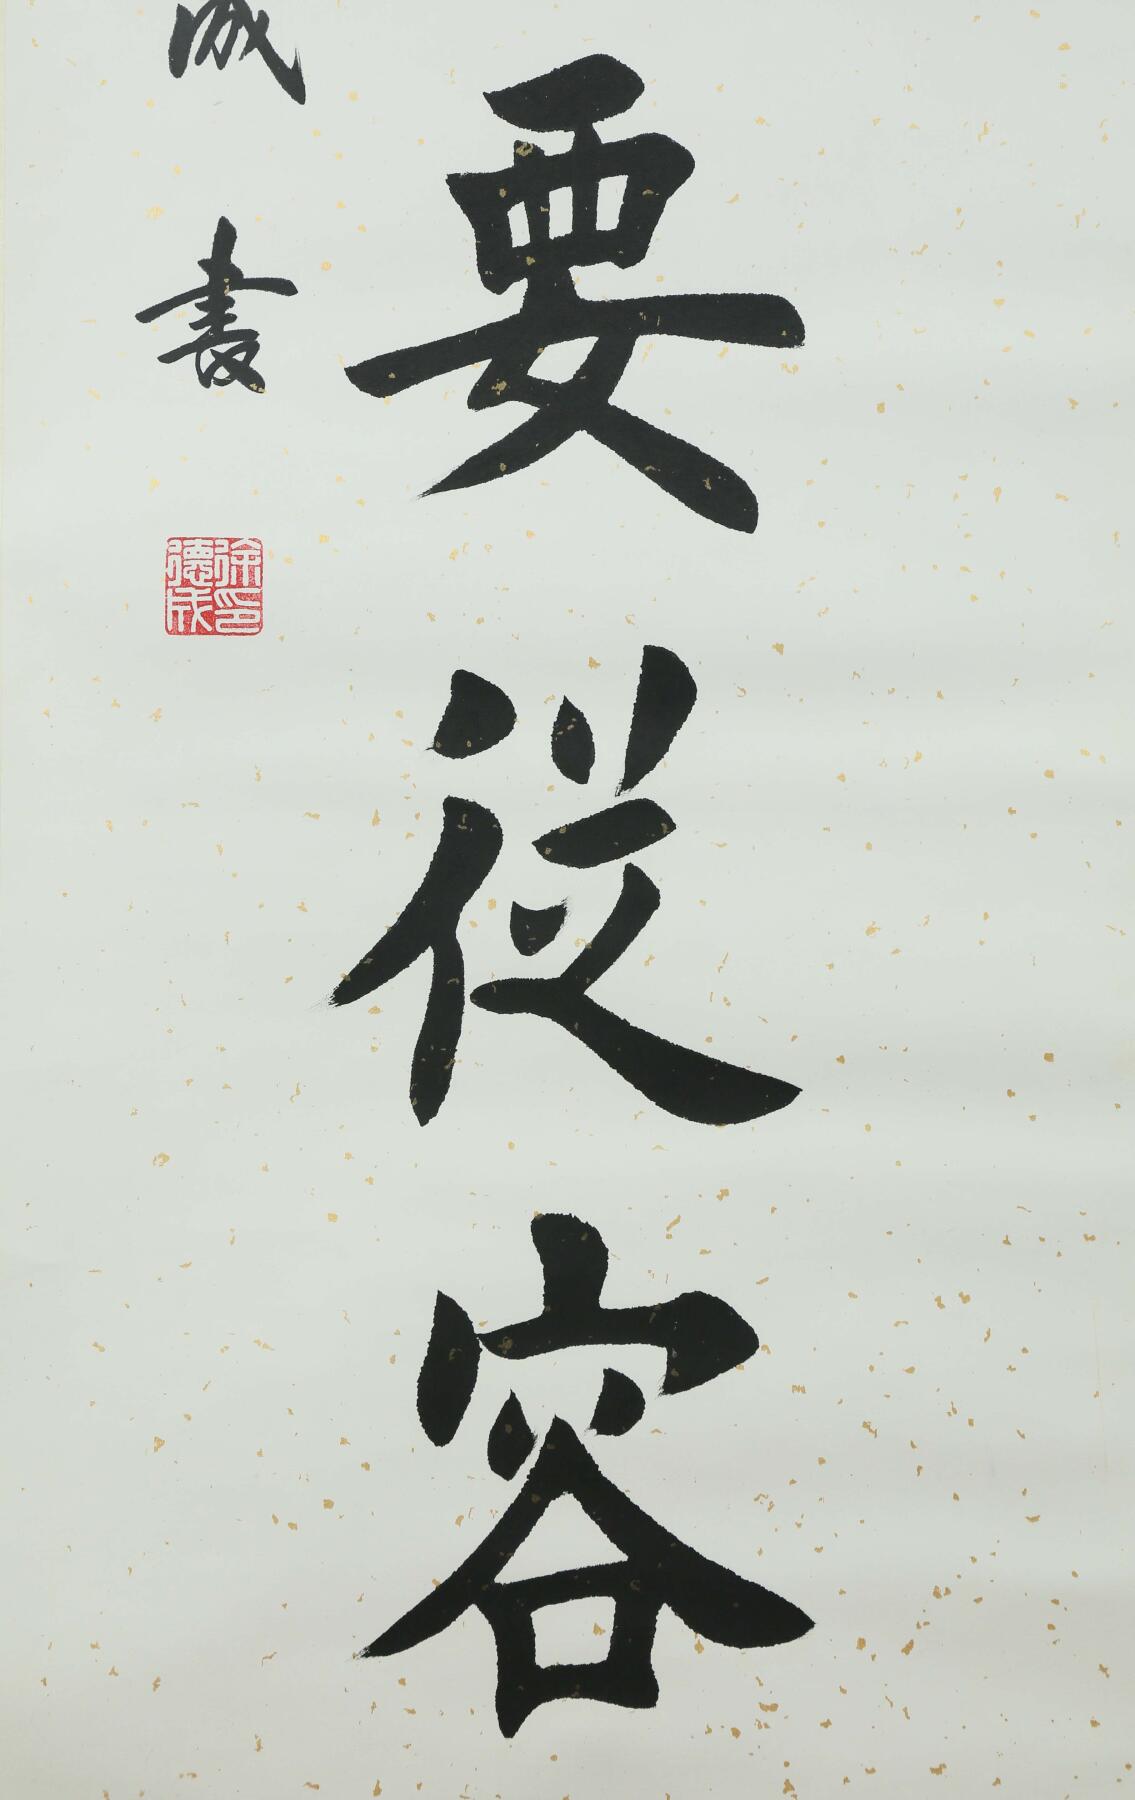 要從容
成書
徐德成印